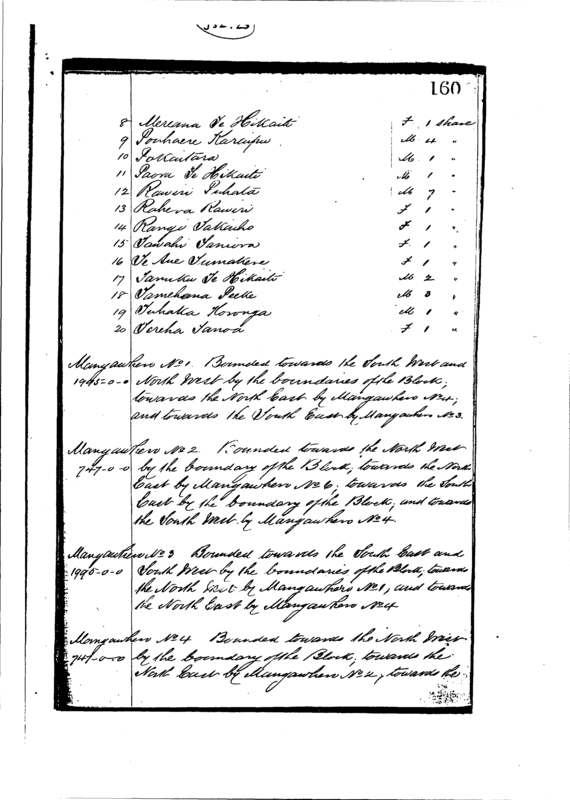 160
8 Mereana Te Hikaiti F 1 share
9 Pouhaere Karaipu M 4 "
10 Pokaitara M 1 "
11 Paora Te Hikaiti M 1 "
12 Rawiri Puhata M 7 "
13 Rahera Rawiri F 1 "
14 Rangi Takaiho F 1 "
15 Tawahi Taniora F 1 "
16 Te Aue Tumatere F 1 "
17 Tanuku Te Hikaiti M 2 "
18 Tamehana Peeke M 3 "
19 Tuhaka Horonga M 1 "
20 Tereha Tanoa F 1 "
Mangawhero No 1. Bounded towards the South West and
1995-0-0 North West by the boundaries of the Block;
towards the North East by Mangawhero No 4;
and towards the South East by Mangawhero No 3.
Mangawhero No 2 Bounded towards the North West
747-0-0 by the boundary of the Block; towards the North
East by Mangawhero No 6; towards the South
East by the boundary of the Block, and towards
the South West by Mangawhero No 4.
Mangawhero No 3 Bounded towards the South East and
1995-0-0 South West by the boundaries of the Block; towards
the North West by Mangawhero No 1, and towards
the North East by Mangawhero No 4
Mangawhero No 4 Bounded towards the North West
747-0-0 by the boundary of the Block, towards the
North East by Mangawhero No 2, towards the